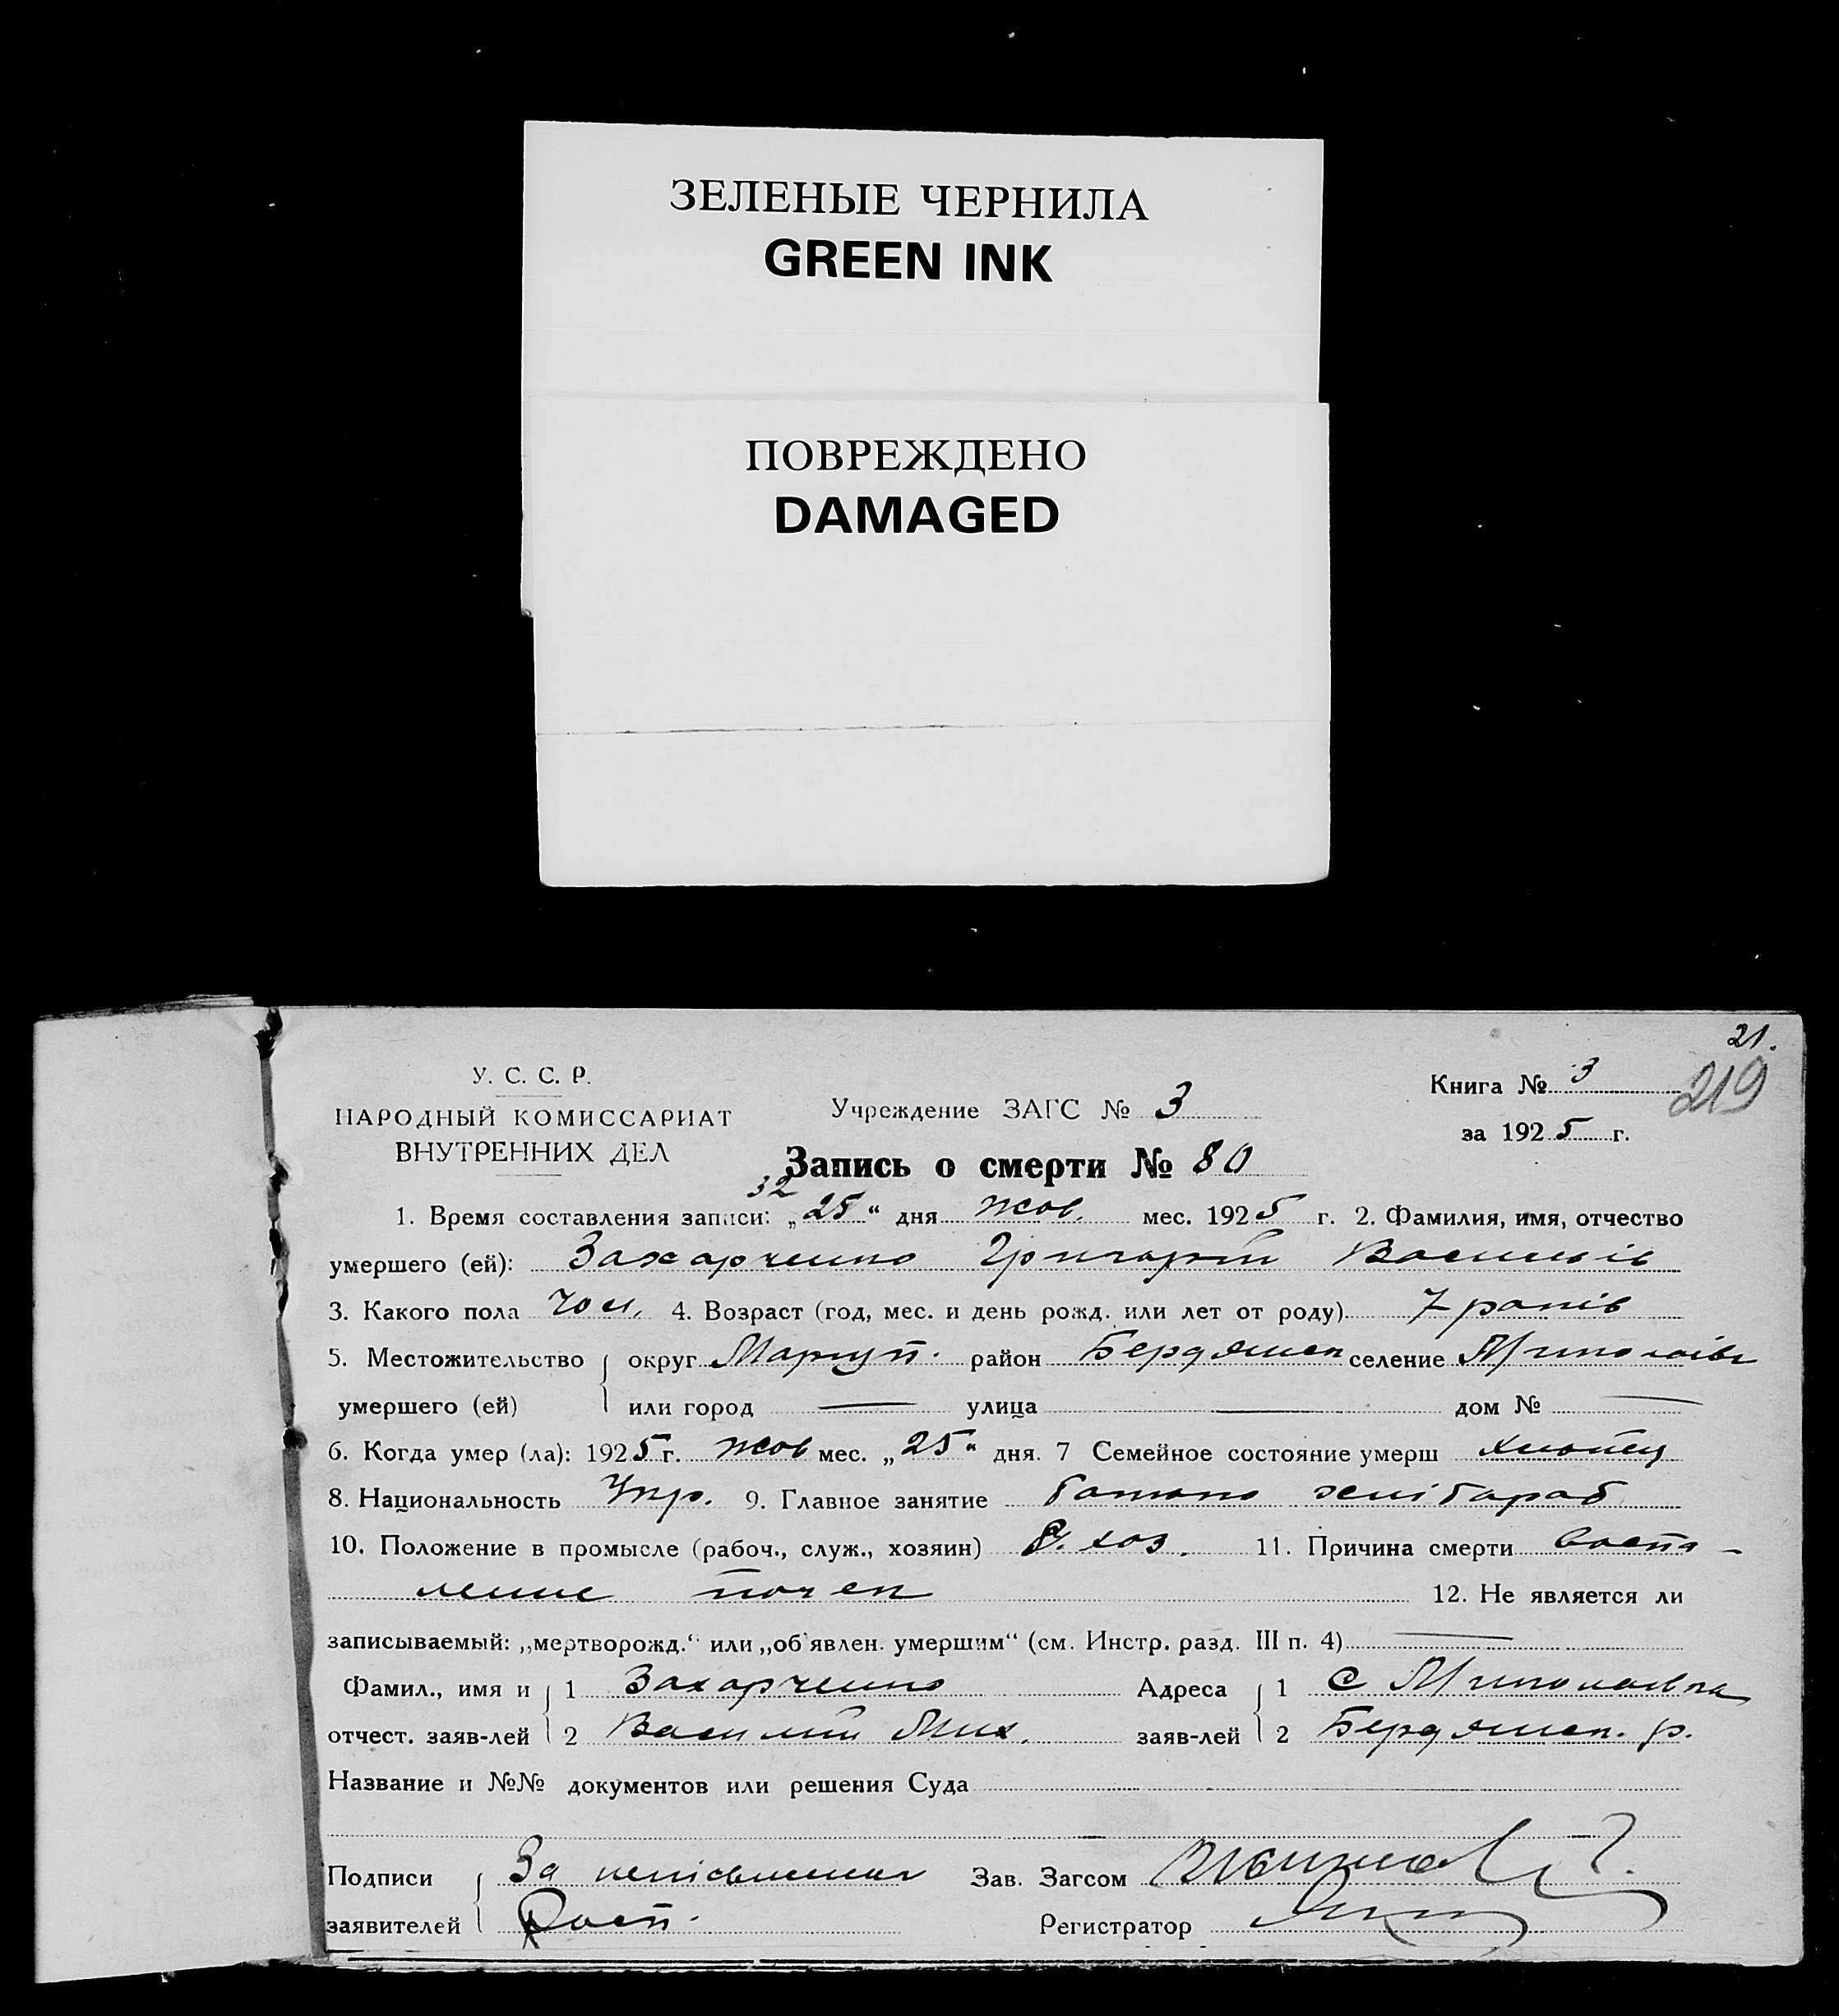 ЗЕЛЕНЫЕ ЧЕРНИЛА
GREEN INK
ПОВРЕЖДЕНО
DAMAGED
21.
219
У. С. С. Р.
НАРОДНЫЙ КОМИССАРИАТ
ВНУТРЕННИХ ДЕЛ
Учреждение ЗАГС № 3
Книга № 3
за 1925 г.
Запись о смерти № 80
32
1. Время составления записи: „25“ дня жов. мес. 1925 г. 2. Фамилия, имя, отчество
умершего (ей): Захарченко Григорій Васильів
3. Какого пола чол. 4. Возраст (год, мес. и день рожд. или лет от роду) 7 років
5. Местожительство округ Маріуп. район Бердянськ селение Миколаівк
умершего (ей) или город — улица — дом № —
6. Когда умер (ла): 1925 г. жов мес. „25“ дня. 7 Семейное состояние умерш хлопец
8. Национальность Укр. 9. Главное занятие батько хлібороб
10. Положение в промысле (рабоч., служ., хозяин) хоз. 11. Причина смерти воспа-
ление почек 12. Не является ли
записываемый: „мертворожд.“ или „об'явлен. умершим“ (см. Инстр. разд. III п. 4) —
Фамил., имя и 1 Захарченко Адреса 1 с Миколаевка
отчест. заяв-лей 2 Василий Мих. заяв-лей 2 Бердянськ. р.
Название и №№ документов или решения Суда
Подписи За Зав. Загсом
заявителей Регистратор